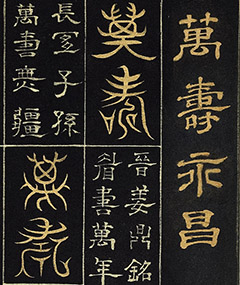 萬壽永昌
萬壽
晉姜鼎銘
眉壽萬年
長宜子孫
萬壽無疆
萬壽